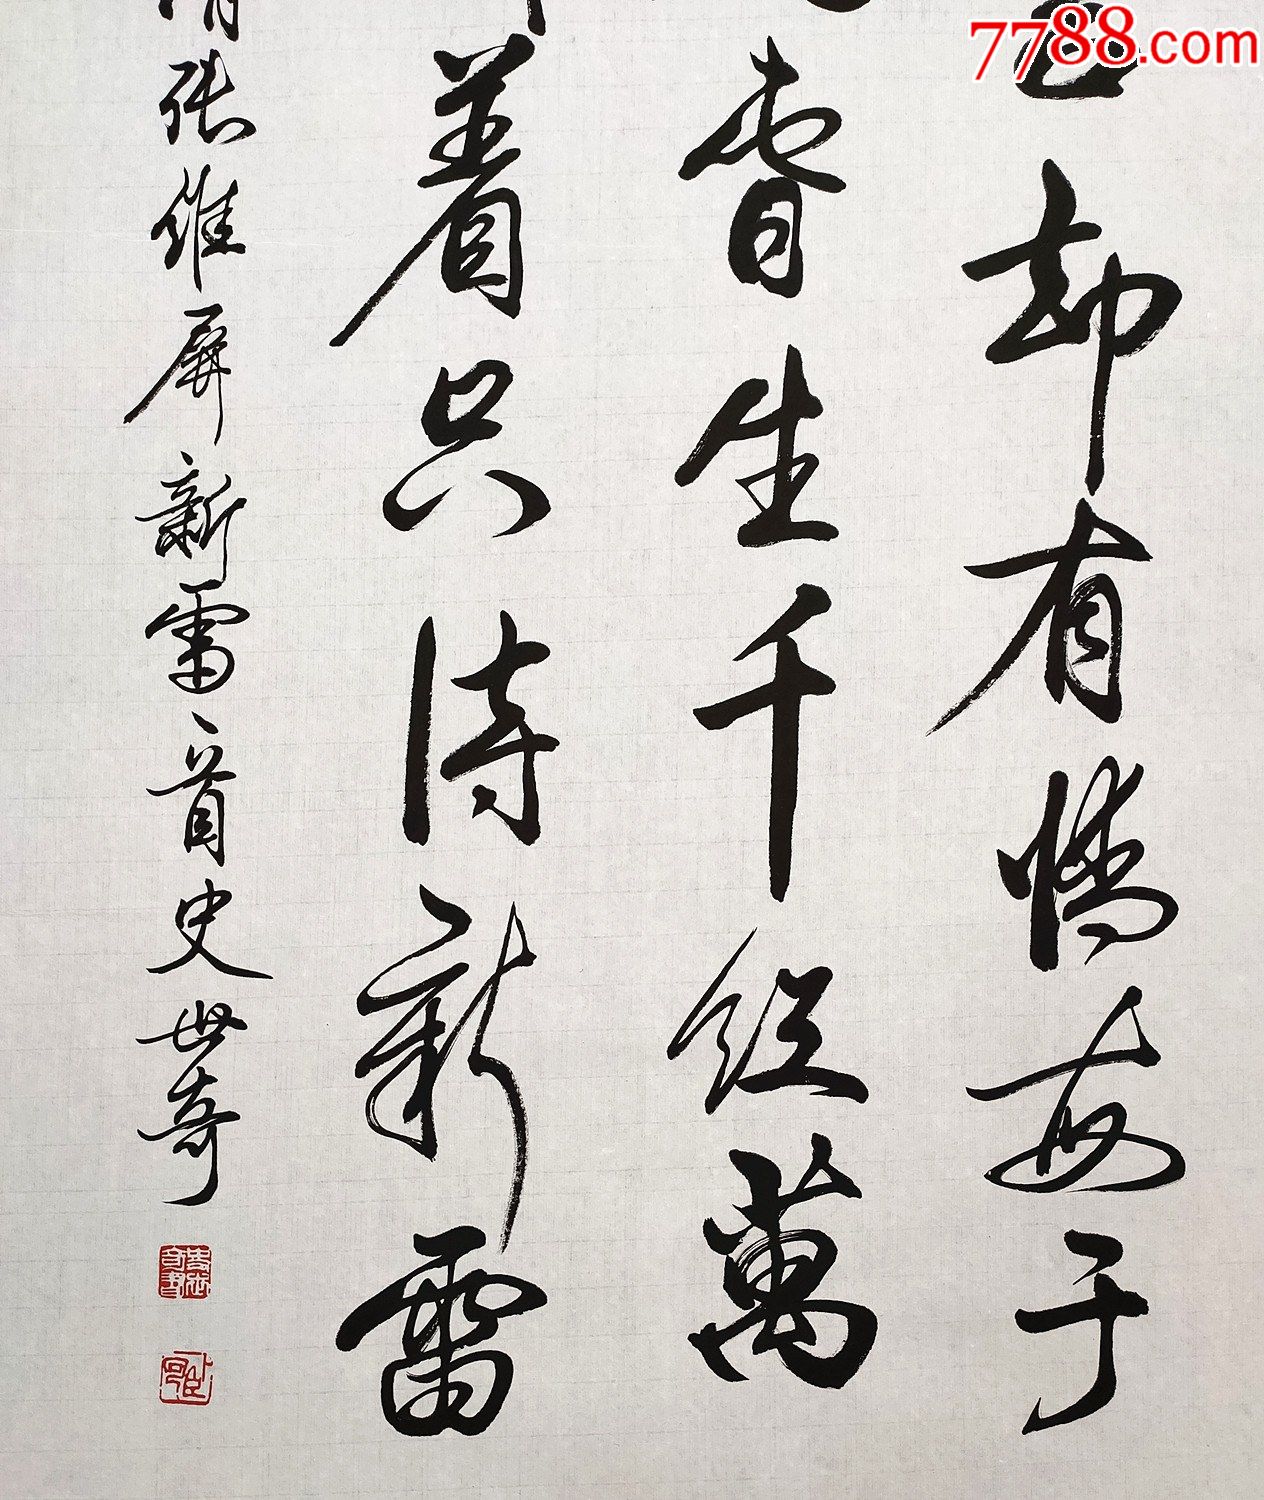 7788.com
却有情每于
春生千红萬
着只待新雷
张维屏新雷一首史世奇